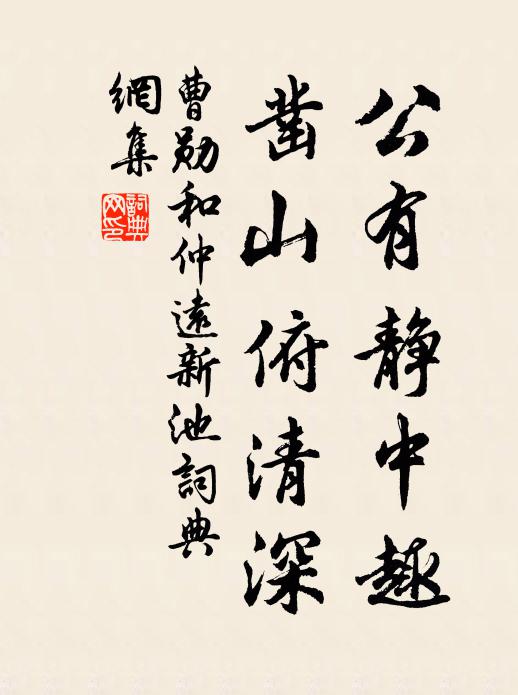 公有静中趣
凿山俯清深
曹勋和仲遠新池詞典
網集
詞典
网印